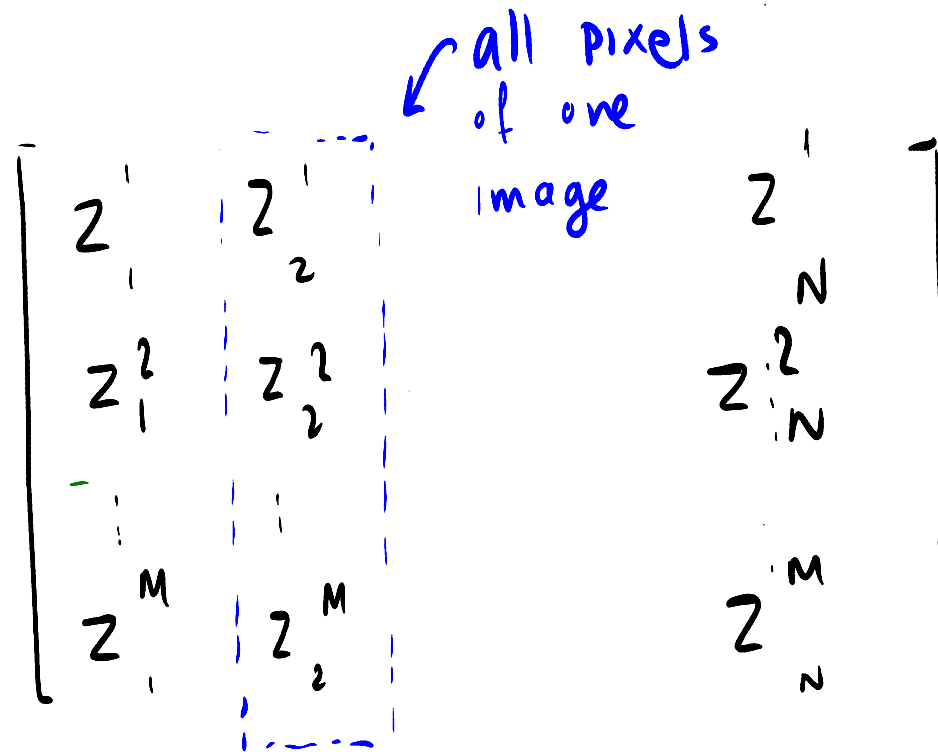 all pixels
of one
image
Z₁¹ Z₂¹ Z_N¹
Z₁² Z₂² Z_N²
⋮ ⋮
Z₁ᴹ Z₂ᴹ Z_Nᴹ